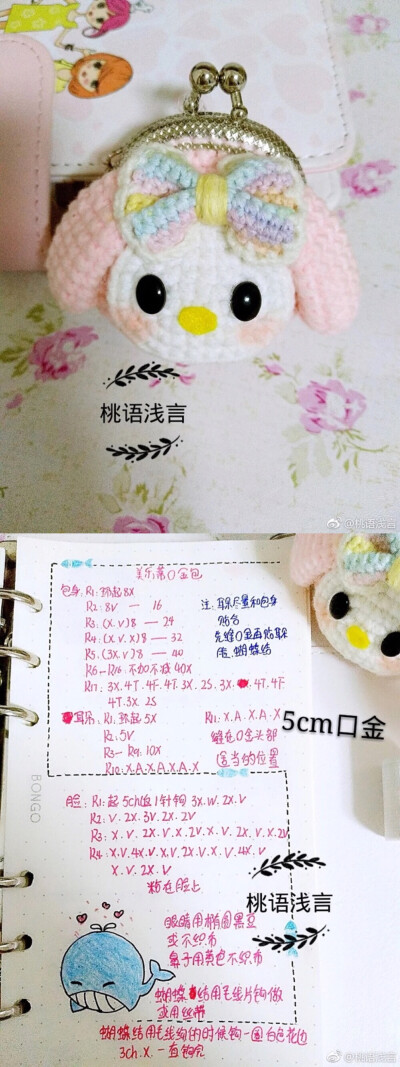 桃语浅言
@桃语浅言
美乐蒂口金包
包身: R1: 环起8X
R2: 8V — 16
R3: (X.V)8 — 24
R4: (2X.V)8 — 32
R5: (3X.V)8 — 40
R6—R16: 不加不减 40X
R17: 3X.4T.4F.4T.3X.2S.3X.4T.4F
4T.3X.2S
注: 耳朵尽量和包身
贴合
先缝口金再贴耳
朵.蝴蝶结
5cm口金
耳朵: R1: 环起5X
R2: 5V
R3—R9: 10X
R10: X.A.X.A.X.A.X
R11: X.A.X.A.X
缝在口金头部
适当的位置
BONGO
脸: R1: 起5ch倒1针钩3X.W.2X.V
R2: V.2X.3V.2X.2V
R3: X.V.2X.V.X.2V.X.V.2X.V.X.2V
R4: X.V.4X.V.X.V.2X.V.X.V.4X.V
X.V.2X.V
粘在脸上
桃语浅言
眼睛用椭圆黑豆
或不织布
鼻子用黄色不织布
蝴蝶结用毛线片钩做
或用丝带
蝴蝶结用毛线钩的时候钩一圈白色花边
3ch.X.一直钩完
@桃语浅言